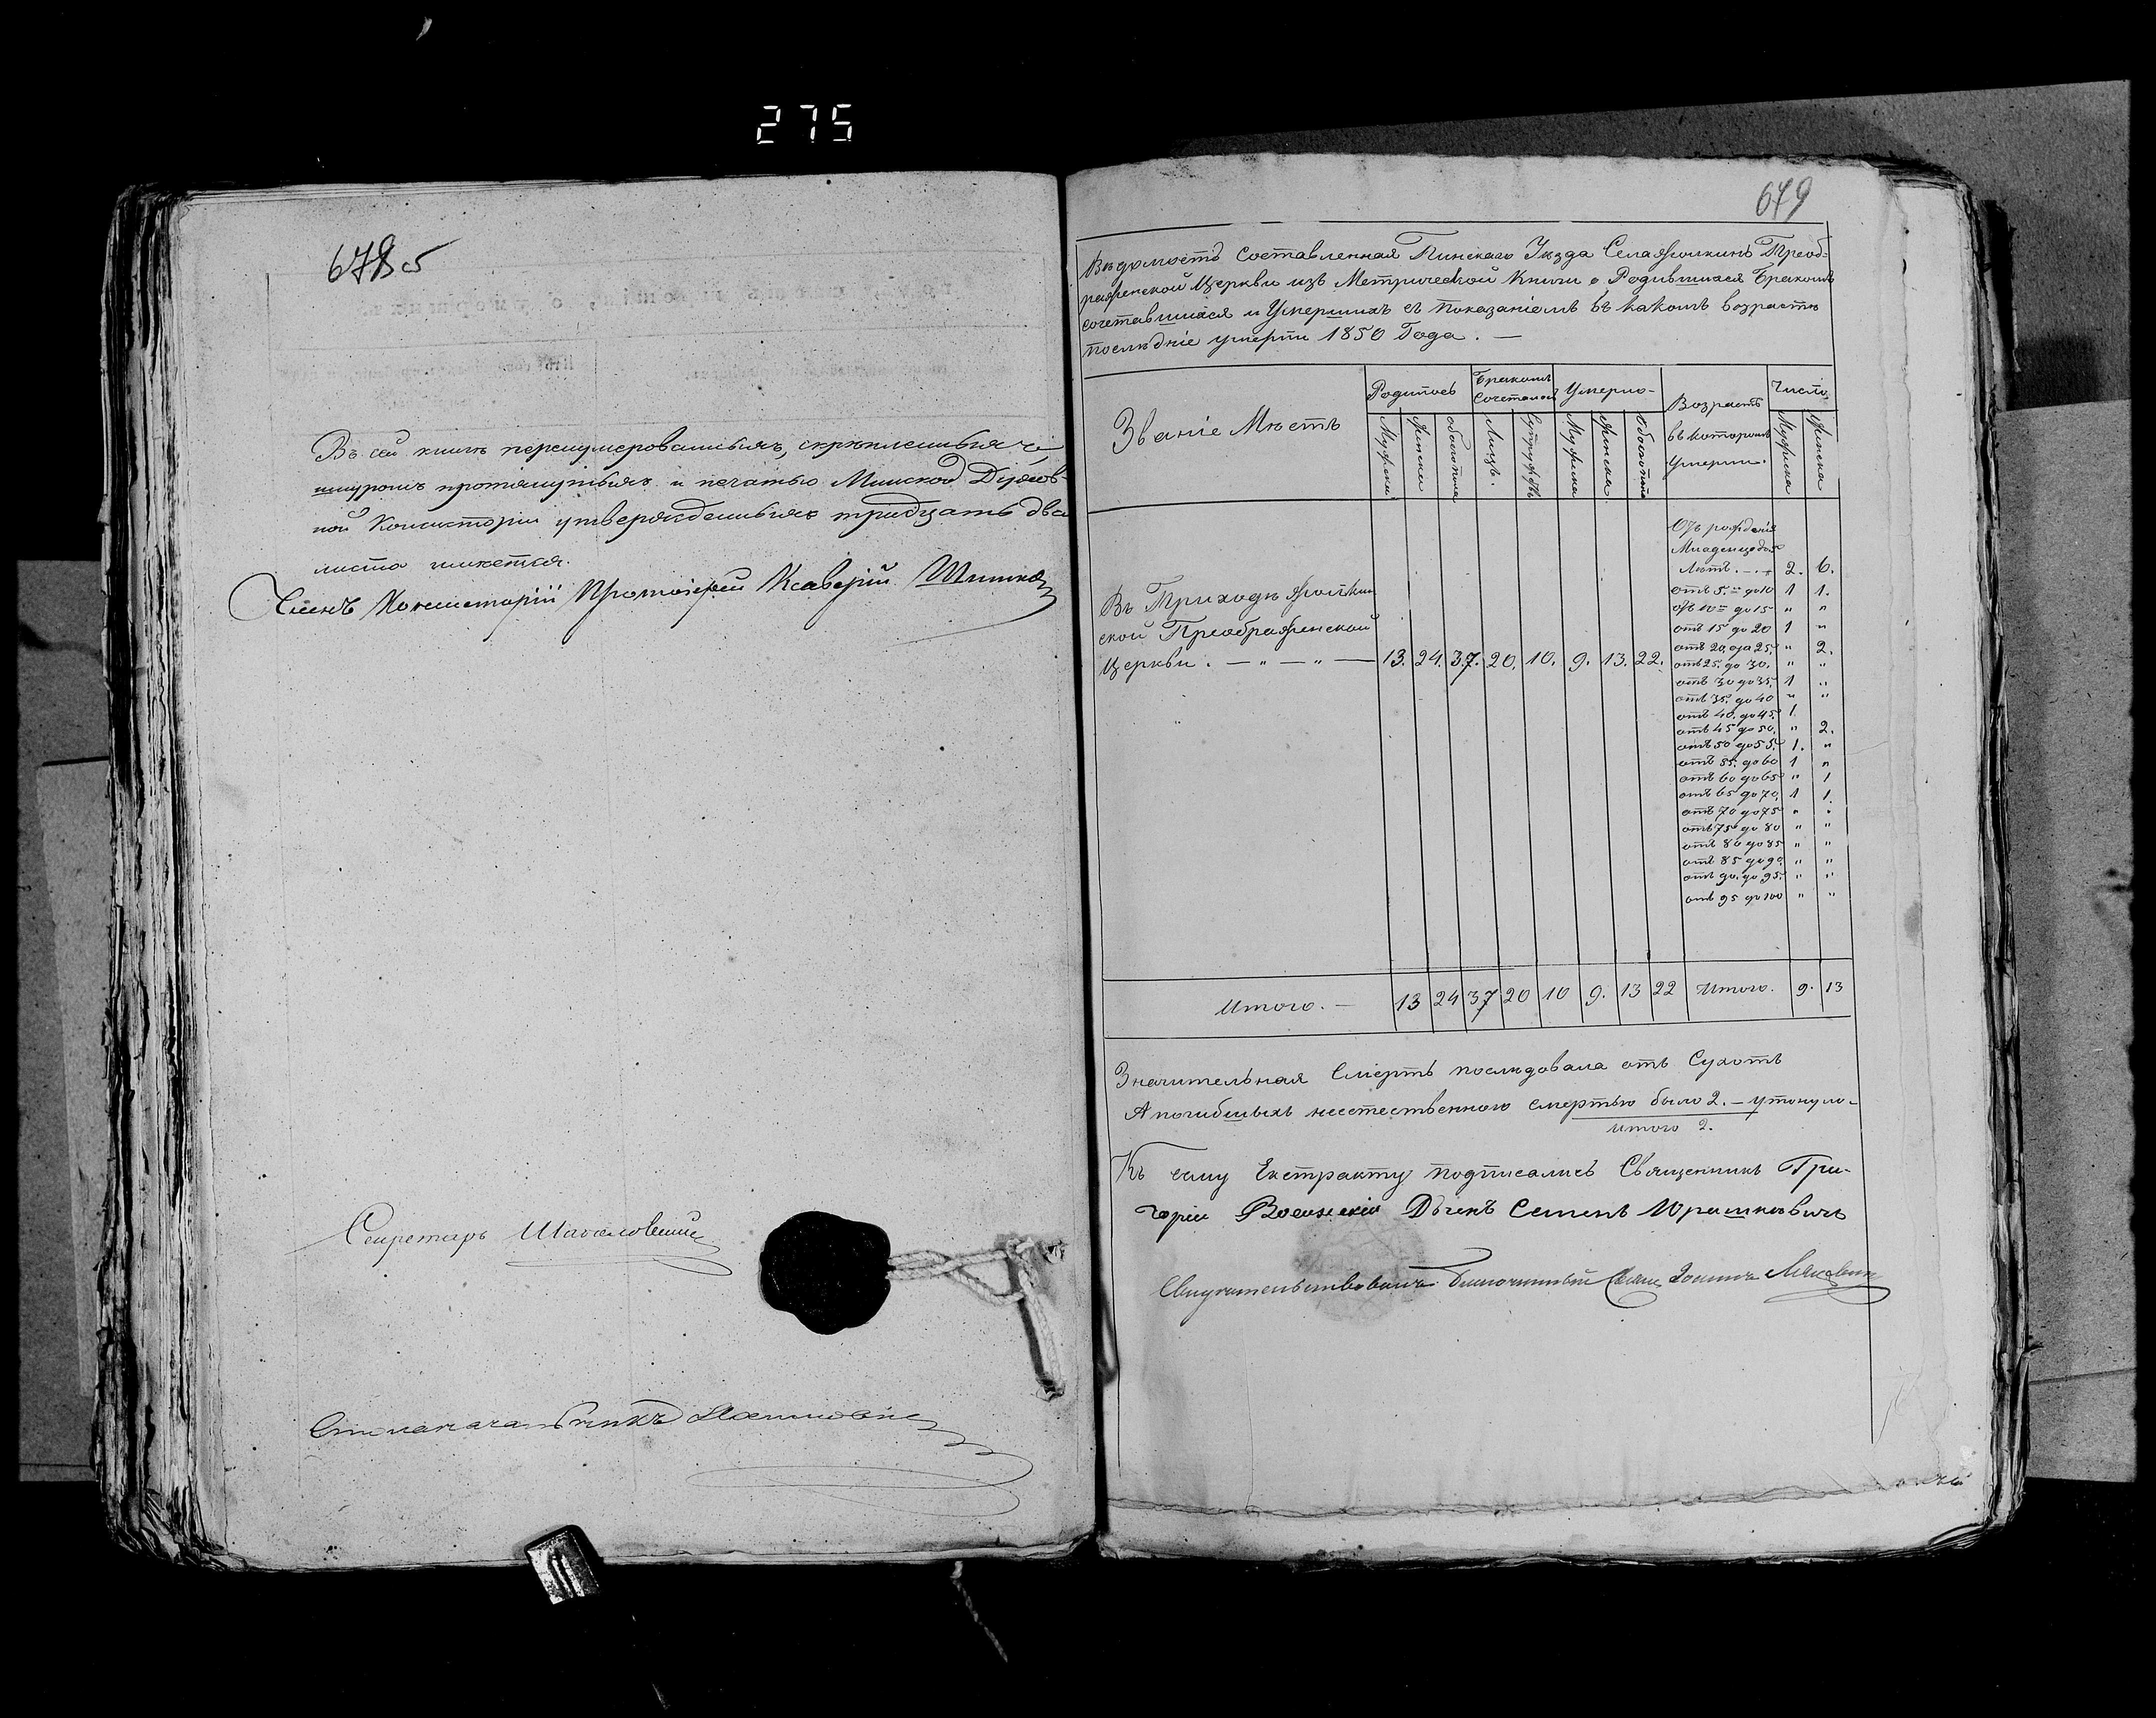 275
678 об
Въ сей книгѣ перенумерованныхъ, скрѣпленныхъ и
шнуромъ протянутыхъ и печатью Минской Духов-
ной Консисторіи утвержденныхъ тридцать два
листа имѣется.
Членъ Консисторіи Протоіерей Ксаверій
Секретарь
Столоначальникъ
679
Вѣдомость составленная Пинскаго Уѣзда Села Жолкинъ Преоб-
раженской Церкви изъ Метрической Книги о Родившихся Бракомъ
сочетавшихся и Умершихъ съ показаніемъ въ какомъ возрастѣ
послѣдніе умерли 1850 Года. —
Званіе Мѣстъ
Родилось
Бракомъ
Сочеталось
Умерло
Возрастъ
въ которомъ
Умерли.
Число
Мужска
Женска
обоего пола
Лицъ.
Супружествъ
Мужска
Женска
Обоего пола
Мужска
Женска
Въ Приходѣ Жолкин
ской Преображенской
Церкви. — " — " — 13. 24. 37. 20. 10. 9. 13. 22.
Отъ рожденія
Младенц. до 5
Лѣтъ. 2. 6.
отъ 5. до 10 1 1.
отъ 10 до 15 " "
отъ 15 до 20 1 "
отъ 20 до 25. " 2.
отъ 25. до 30. " "
отъ 30 до 35. 1 "
отъ 35. до 40 " "
отъ 40. до 45. 1.
отъ 45 до 50. " 2.
отъ 50 до 55. 1. "
отъ 55. до 60 1 "
отъ 60 до 65 " 1
отъ 65 до 70. 1 1.
отъ 70 до 75 " "
отъ 75 до 80 " "
отъ 80 до 85 " "
отъ 85 до 90. " "
отъ 90. до 95. " "
отъ 95 до 100 " "
Итого. — 13 24 37 20 10 9. 13 22 Итого. 9. 13
Значительная Смерть послѣдовала отъ Сухотъ
А погибшихъ неестественною смертью было 2. — утонуло
итого 2.
Къ сему Екстракту подписались Священникъ Гри-
горій Дьячекъ Семенъ Юрашкевичъ
Свидетельствовалъ Благочинный